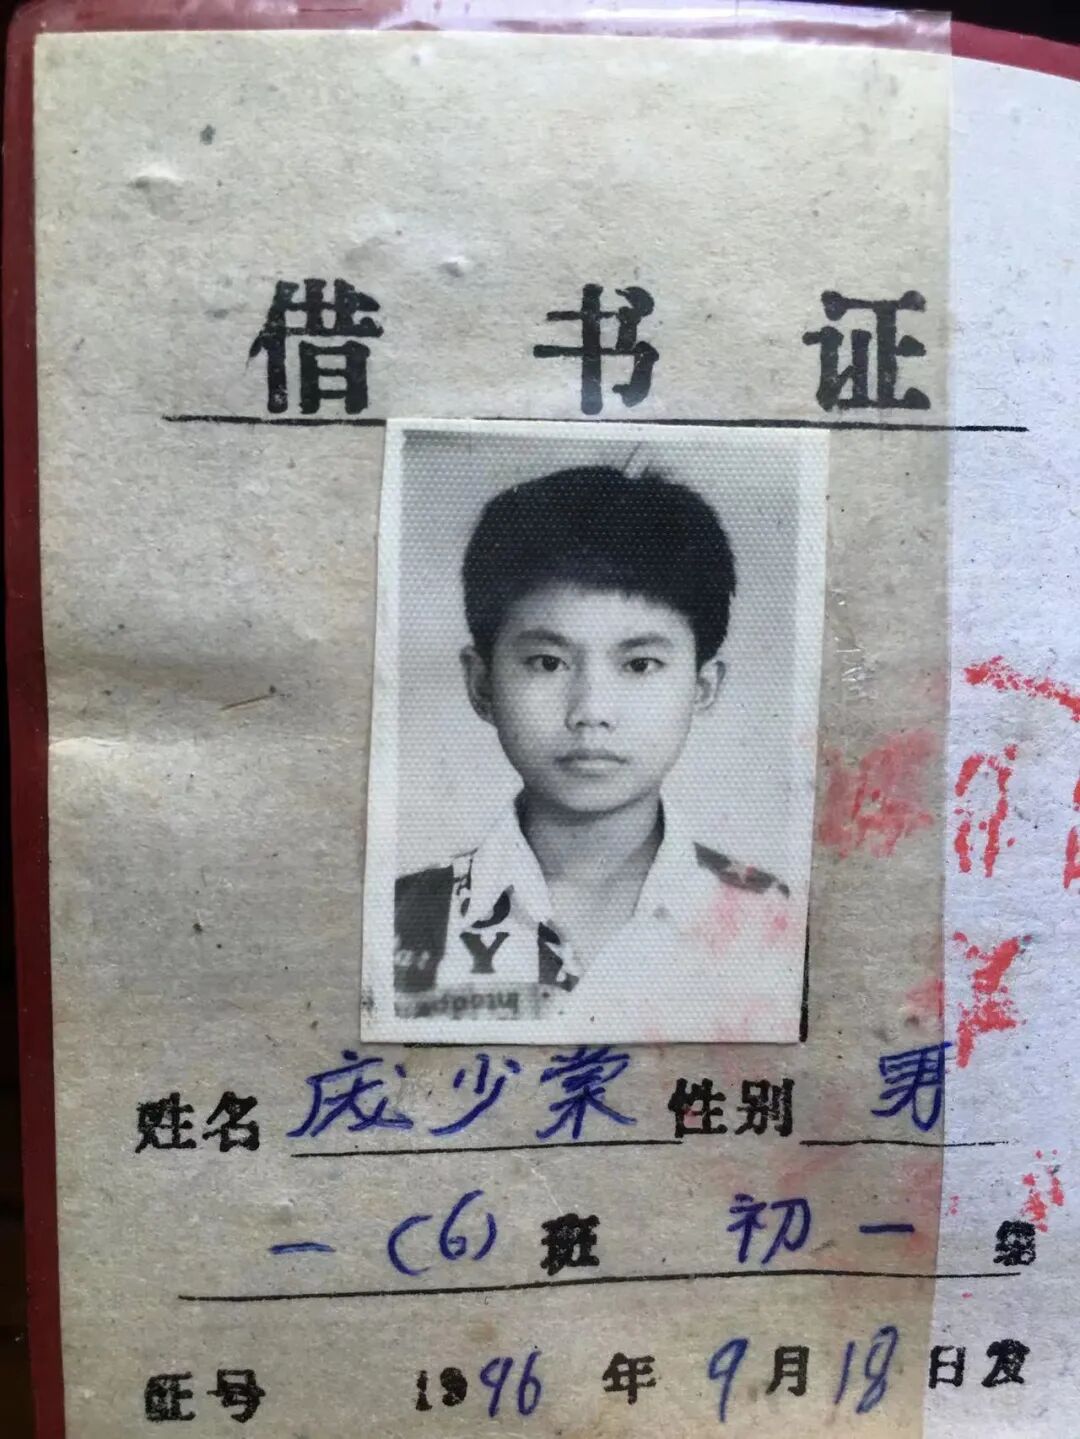 借书证
姓名 庞少 性别 男
一(6)班 初一
证号 1996年9月18日发